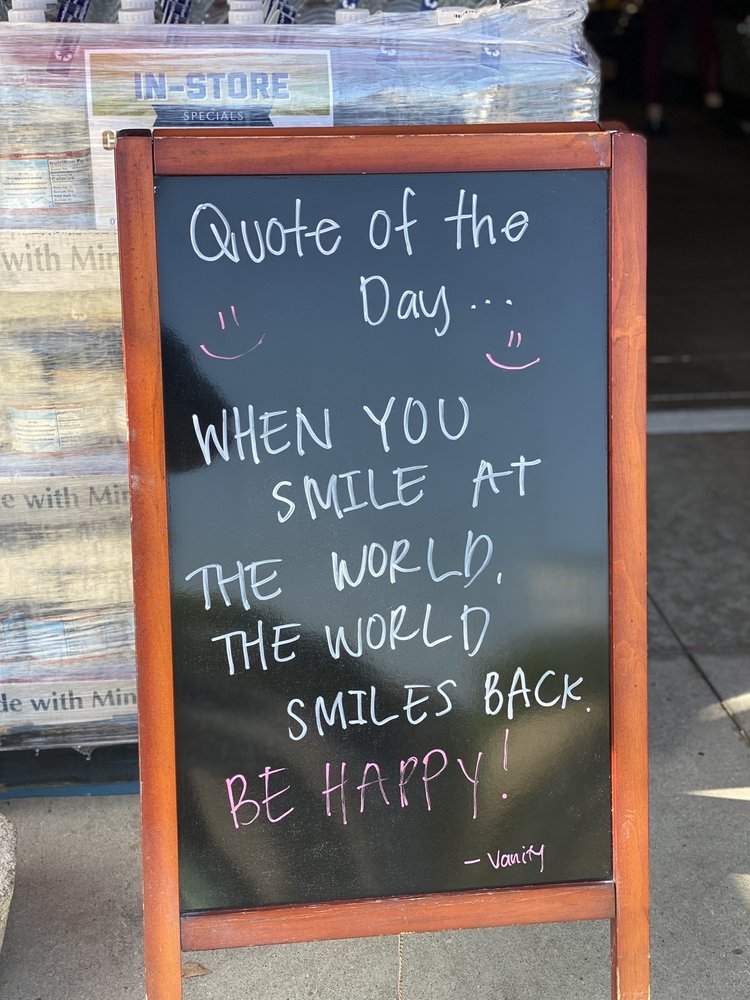 IN-STORE
SPECIALS
Quote of the
Day...
WHEN YOU
SMILE AT
THE WORLD,
THE WORLD
SMILES BACK.
BE HAPPY!
- Vanity
with Min
e with Min
de with Min